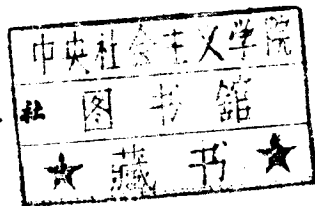 中央社会主义学院
社 图书馆
★ 藏书 ★